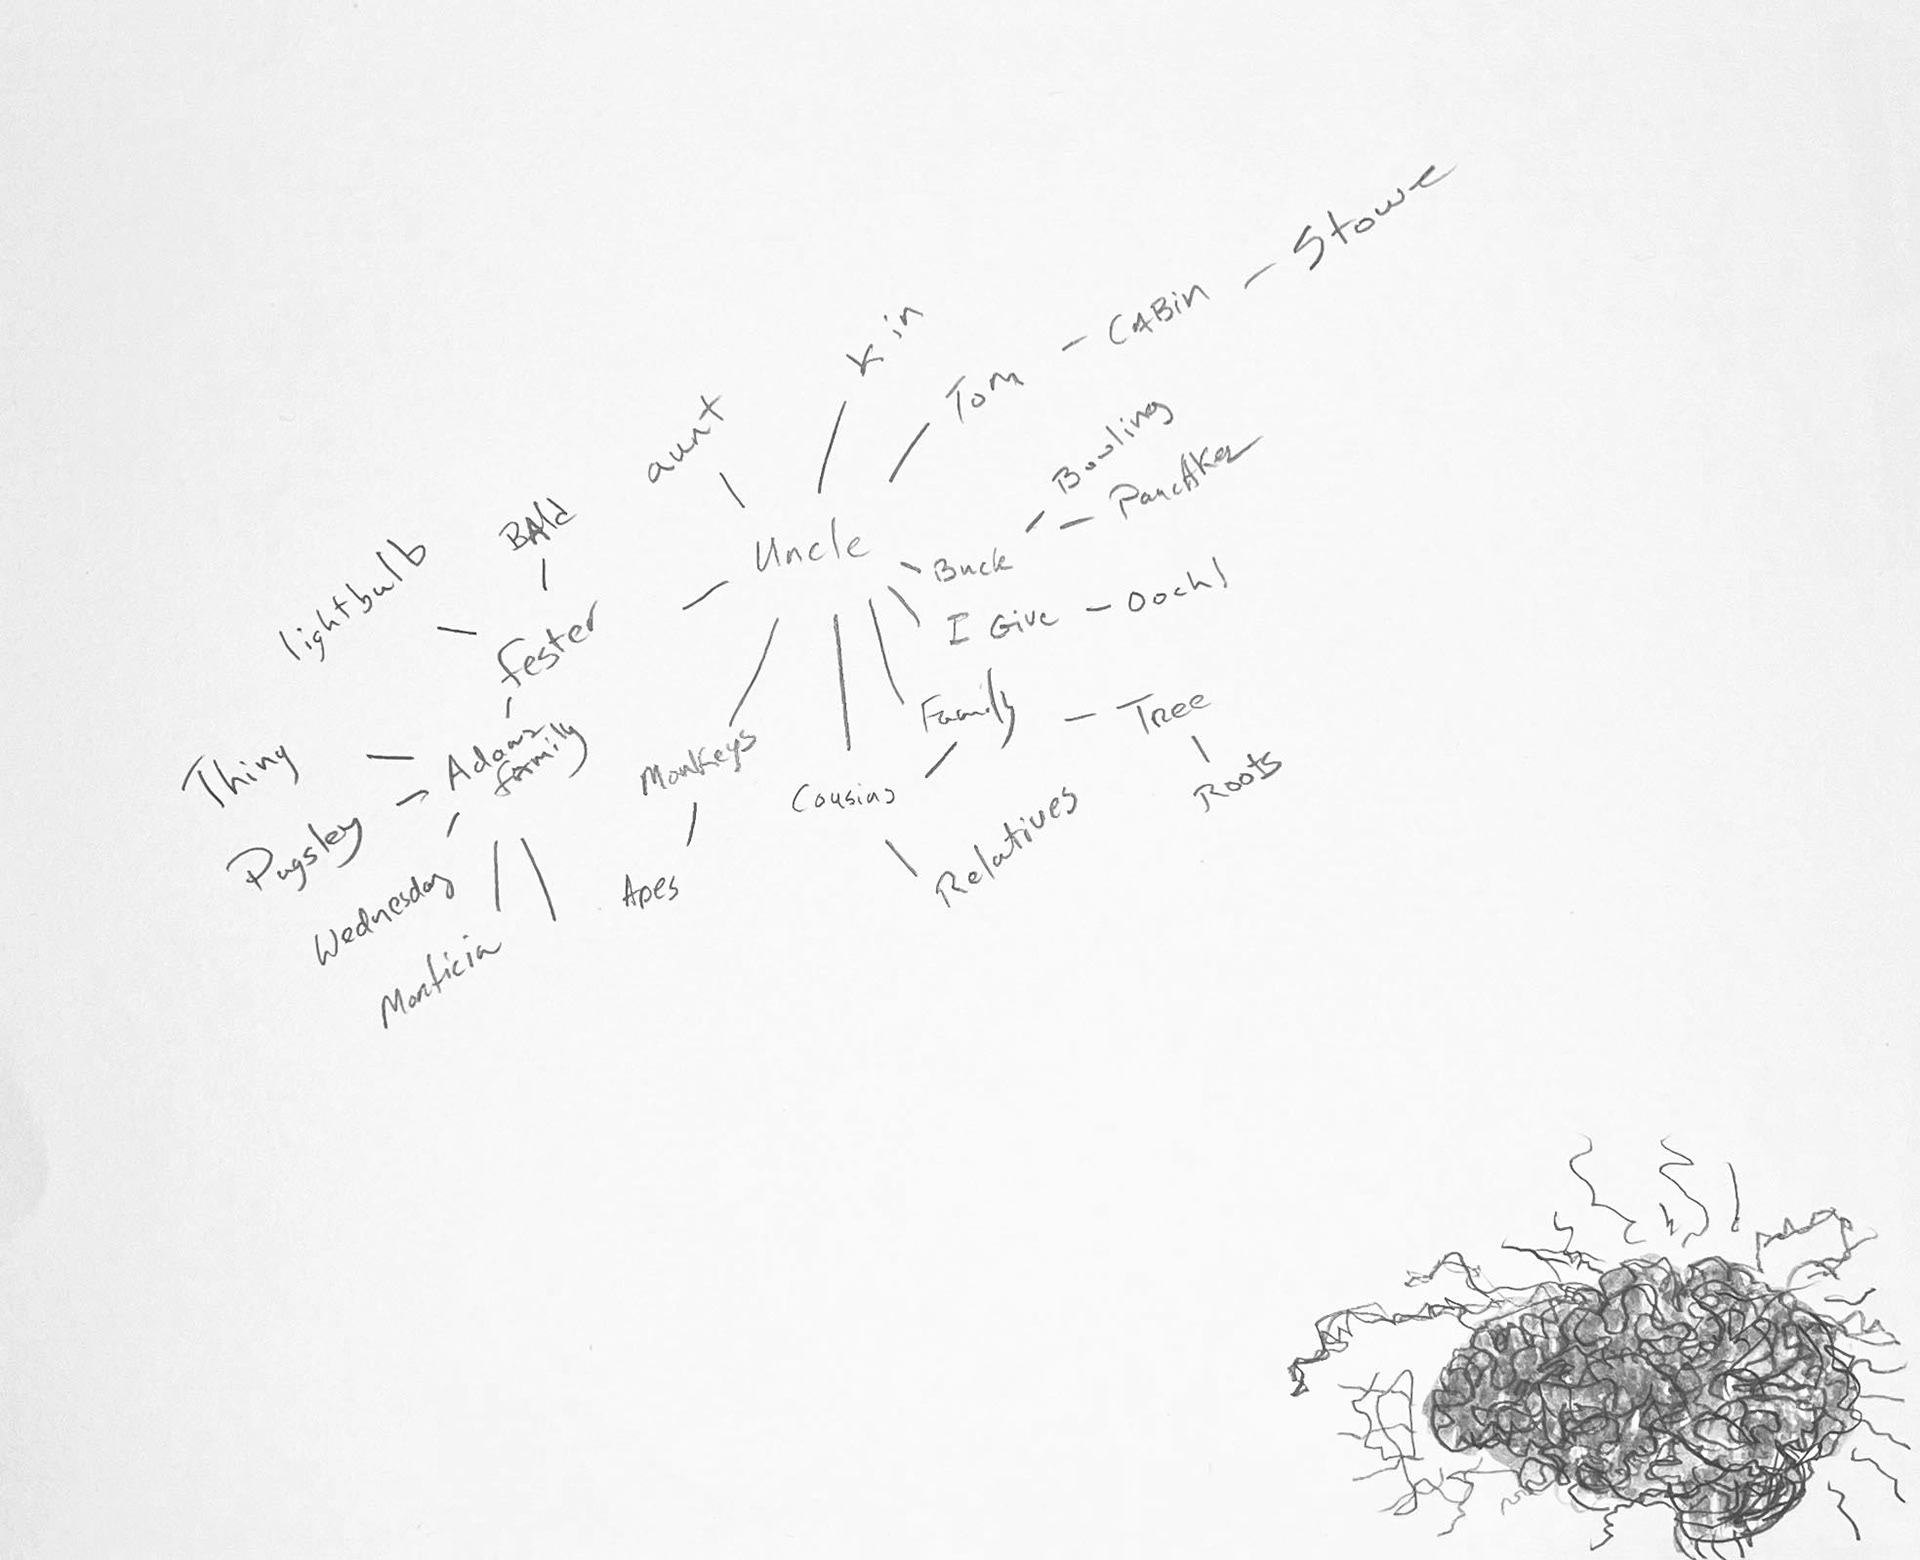 Stowe
CABin
Kin
Tom
aunt
Bowling
Pancakes
BAld
Uncle
lightbulb
Buck
I Give
Ooch!
fester
Family
Tree
Adams
family
Thing
Monkeys
Cousins
Roots
Pugsley
Relatives
Apes
Wednesday
Morticia